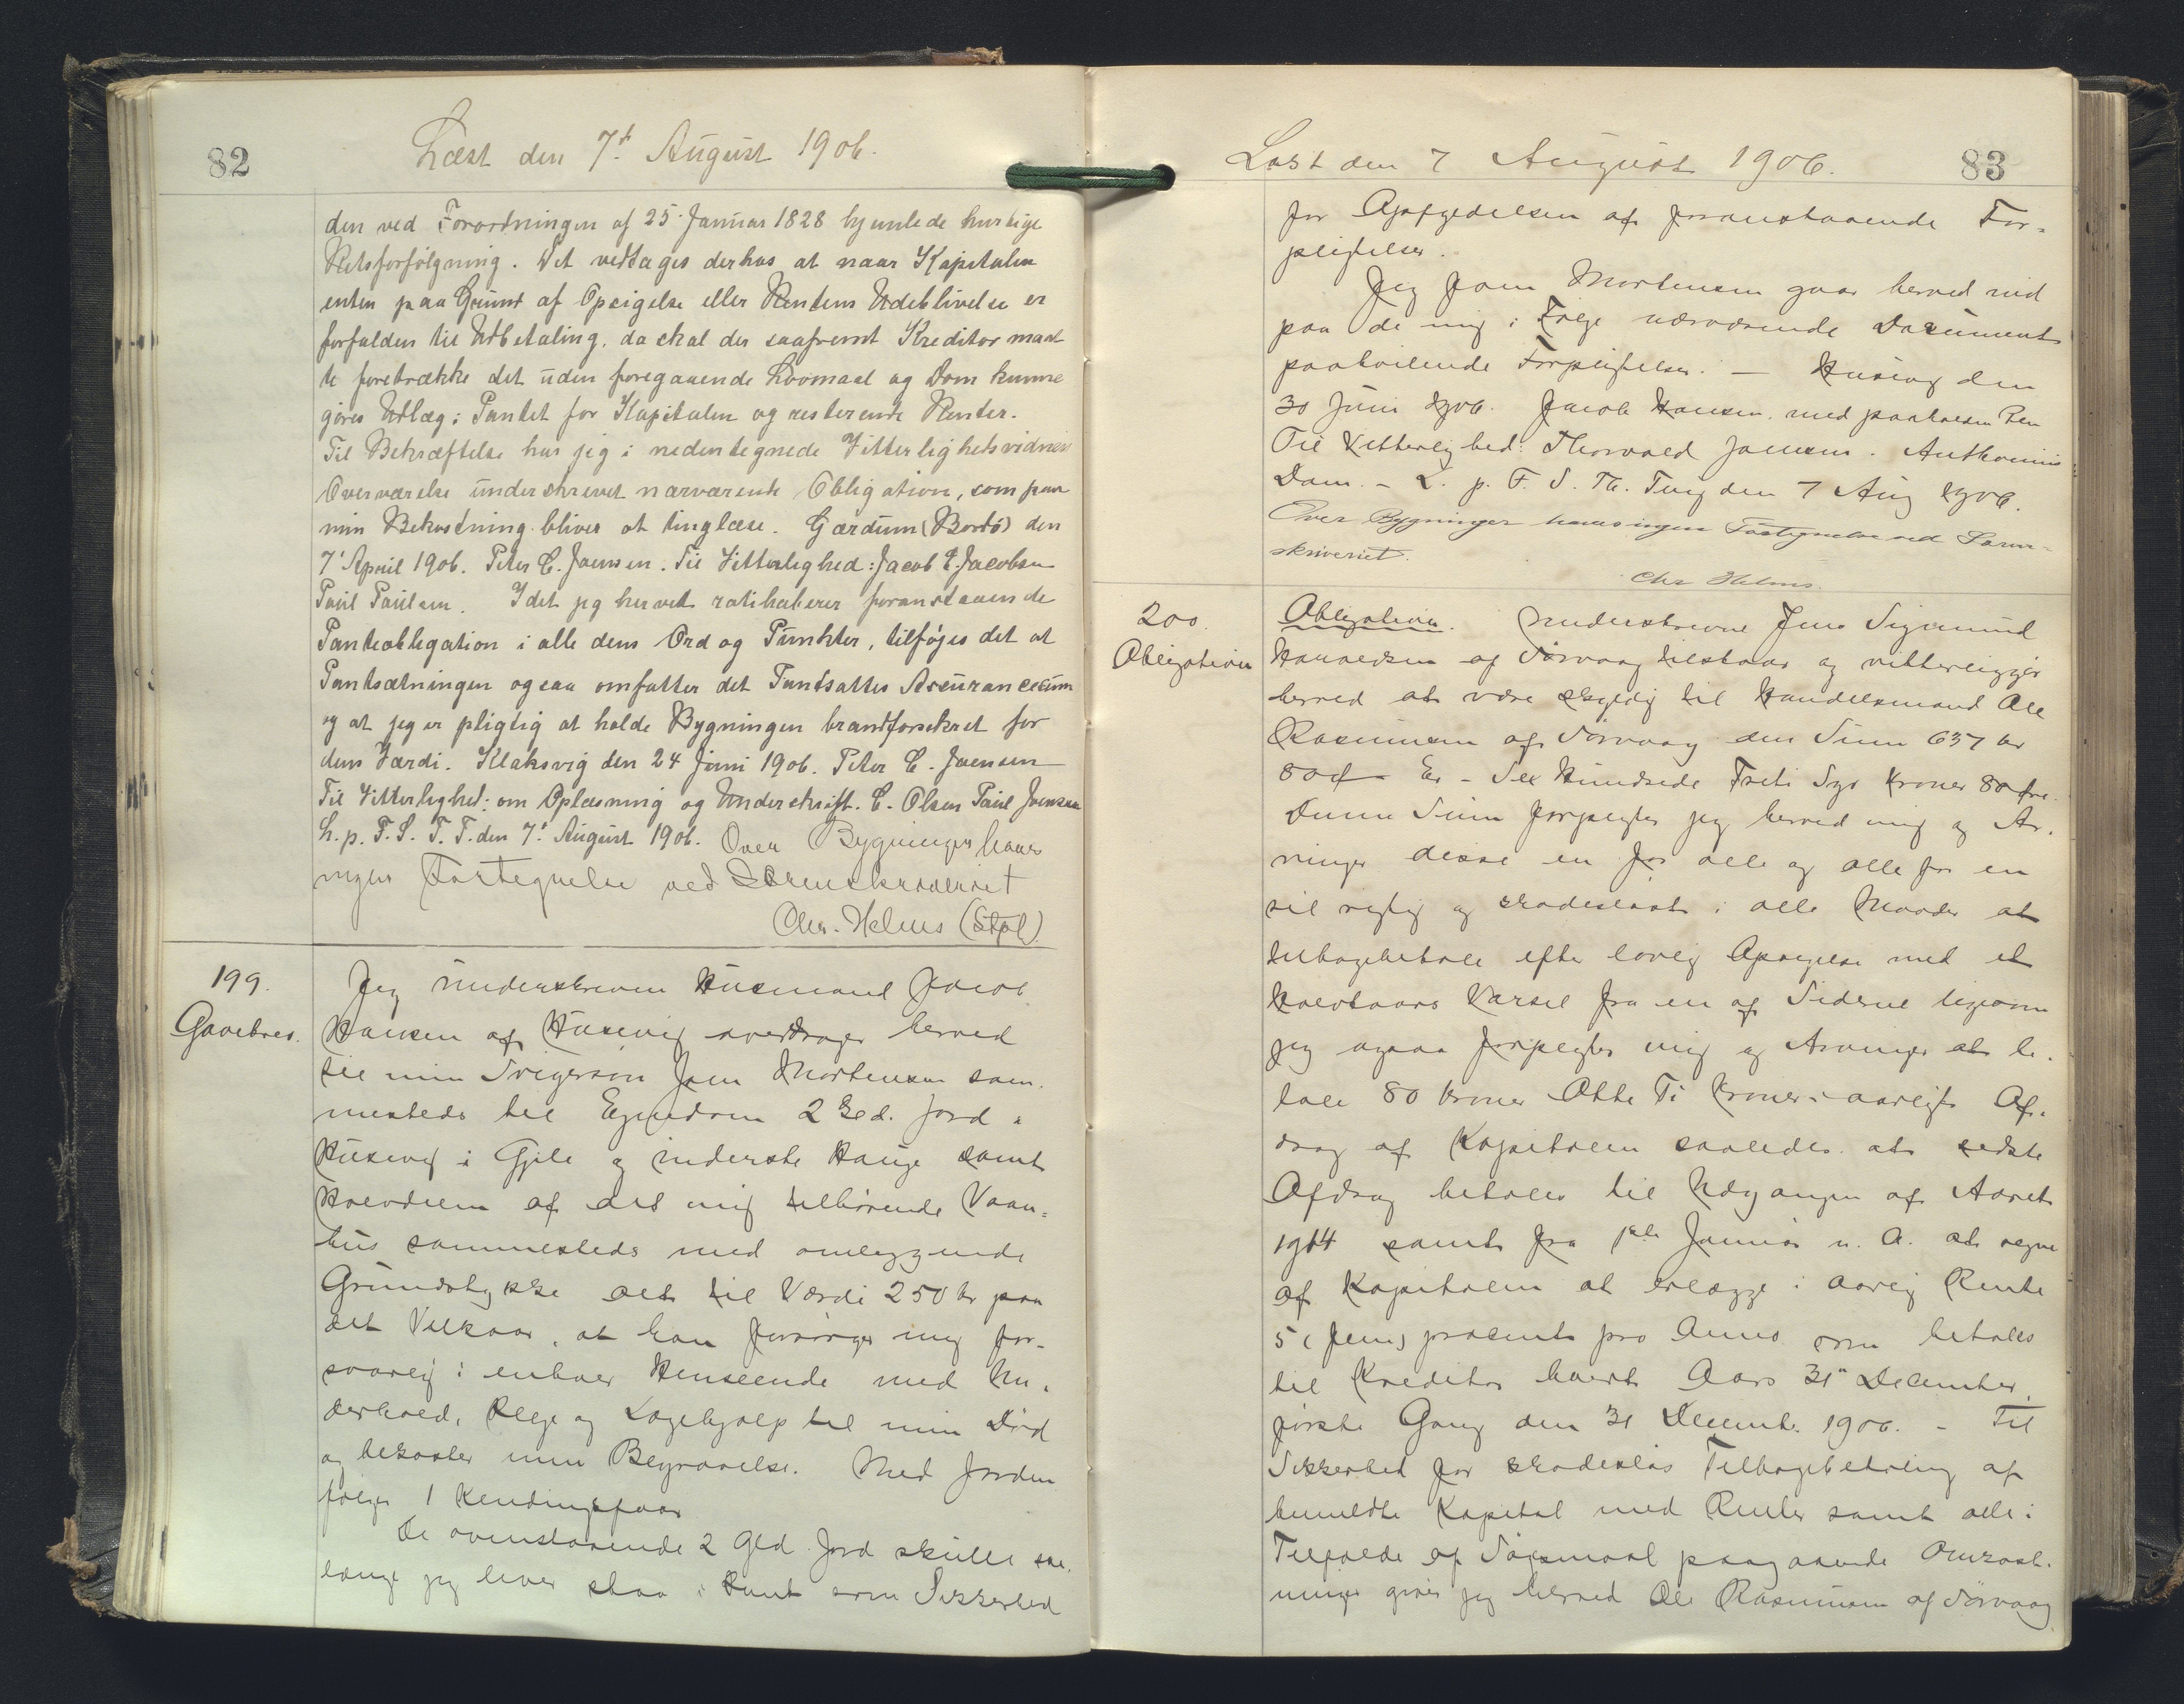 82
Læst den 7' August 1906.
den ved Forordningen af 25. Januar 1828 hjemlede hurtige
Retsforfølgning. Det vedtages derhos at naar Kapitalen
enten paa Grund af Opsigelse eller Rentens Udeblivelse er
forfalden til Udbetaling, da skal der saafremt Kreditor maat
te foretrække det uden foregaaende Lovmaal og Dom kunne
gøres Udlæg i Pantet for Kapitalen og resterende Renter.
Til Bekræftelse har jeg i nedentegnede Vitterlighetsvidners
Overværelse underskrevet nærværende Obligation, som paa
min Bekostning bliver at tinglæse. Gærdum (Bordö) den
7' April 1906. Peter C. Joensen. Til Vitterlighed: Jacob J. Jacobsen
Paul Paulsen. Idet jeg hervet ratihaberer foranstaaende
Panteobligation i alle dens Ord og Punkter, tilføjes det at
Pantsætningen ogsaa omfatter det Pantsattes Assurancesum
og at jeg er pligtig at holde Bygningen brandforsikret for
dens Værdi. Klaksvig den 24 Juni 1906. Peter C. Joensen
Til Vitterlighet: om Oplæsning og Underskrift. C. Olsen Paul Joensen
L. p. F. S. T. T. den 7' August 1906. Over Bygninger haves
ingen Fortegnelse ved Sorenskriveriet
Chr. Helms (Stpl)
199.
Gavebrev.
Jeg underskreven Husmand Jacob
Hansen af Husevig overdrager herved
til min Svigersøn Joen Mortensen sam-
mesteds til Ejendom 2 Gld. Jord i
Husevig i Gjile og inderste Hauge samt
Halvdelen af det mig tilhørende Vaan-
hus sammesteds med omliggende
Grundstykke alt til Værdi 250 kr paa
det Vilkaar, at han forsørger mig for-
svarlig i enhver Henseende med Un-
derhold, Pleje og Lægehjælp til min Død
og bekoster min Begravelse. Med Jorden
følger 1 Kendingsfaar
De ovenstaaende 2 Gld Jord skulle saa
længe jeg lever staa i Pant som Sikkerhed
Læst den 7 August 1906.
83
for Opfyldelsen af foranstaaende For-
pligtelser.
Jeg Joen Mortensen gaar herved ind
paa de mig i Følge nærværende Document
paahvilende Forpligtelser. — Husevig den
30 Juni 1906. Jacob Hansen. med paaholden Pen
Til Vitterlighed: Thorvald Joensen. Anthonius
Dam. – L. p. F. S. Th. Ting den 7 Aug 1906.
Over Bygninger haves ingen Fortegnelse ved Soren-
skriveriet.
Chr Helms.
200.
Obligation
Obligation. Underskrevne Jens Sigmund
Haraldsen af Sørvaag tilstaar og vitterliggjør
herved at være skyldig til Handelsmand Ole
Rasmussen af Sørvaag den Sum 637 kr
80 Ø Er – Sex Hundrede Treti Syv Kroner 80 Øre.
Denne Sum forpligter jeg herved mig og Ar-
vinger disse en for alle og alle for en
til rigtig og skadesløst i alle Maader at
tilbagebetale efter lovlig Opsigelse med et
Halvtaars Varsel fra en af Siderne ligesom
jeg ogsaa forpligter mig og Arvinger at be-
tale 80 Kroner Otte Ti Kroner i aarligt Af-
drag af Kapitalen saaledes at sidste
Afdrag betales til Udgangen af Aaret
1914 samt fra 1ste Januar n. A. at regne
af Kapitalen at erlægge i aarlig Rente
5 (fem) procent pro Anno som betales
til Kreditor hvert Aars 31" December,
første Gang den 31 Decemb. 1906. – Til
Sikkerhed for skadesløs Tilbagebetaling af
bemeldte Kapital med Renter samt alle i
Tilfælde af Søgsmaal paagaaende Omkost-
ninger giver jeg herved Ole Rasmussen af Sørvaag